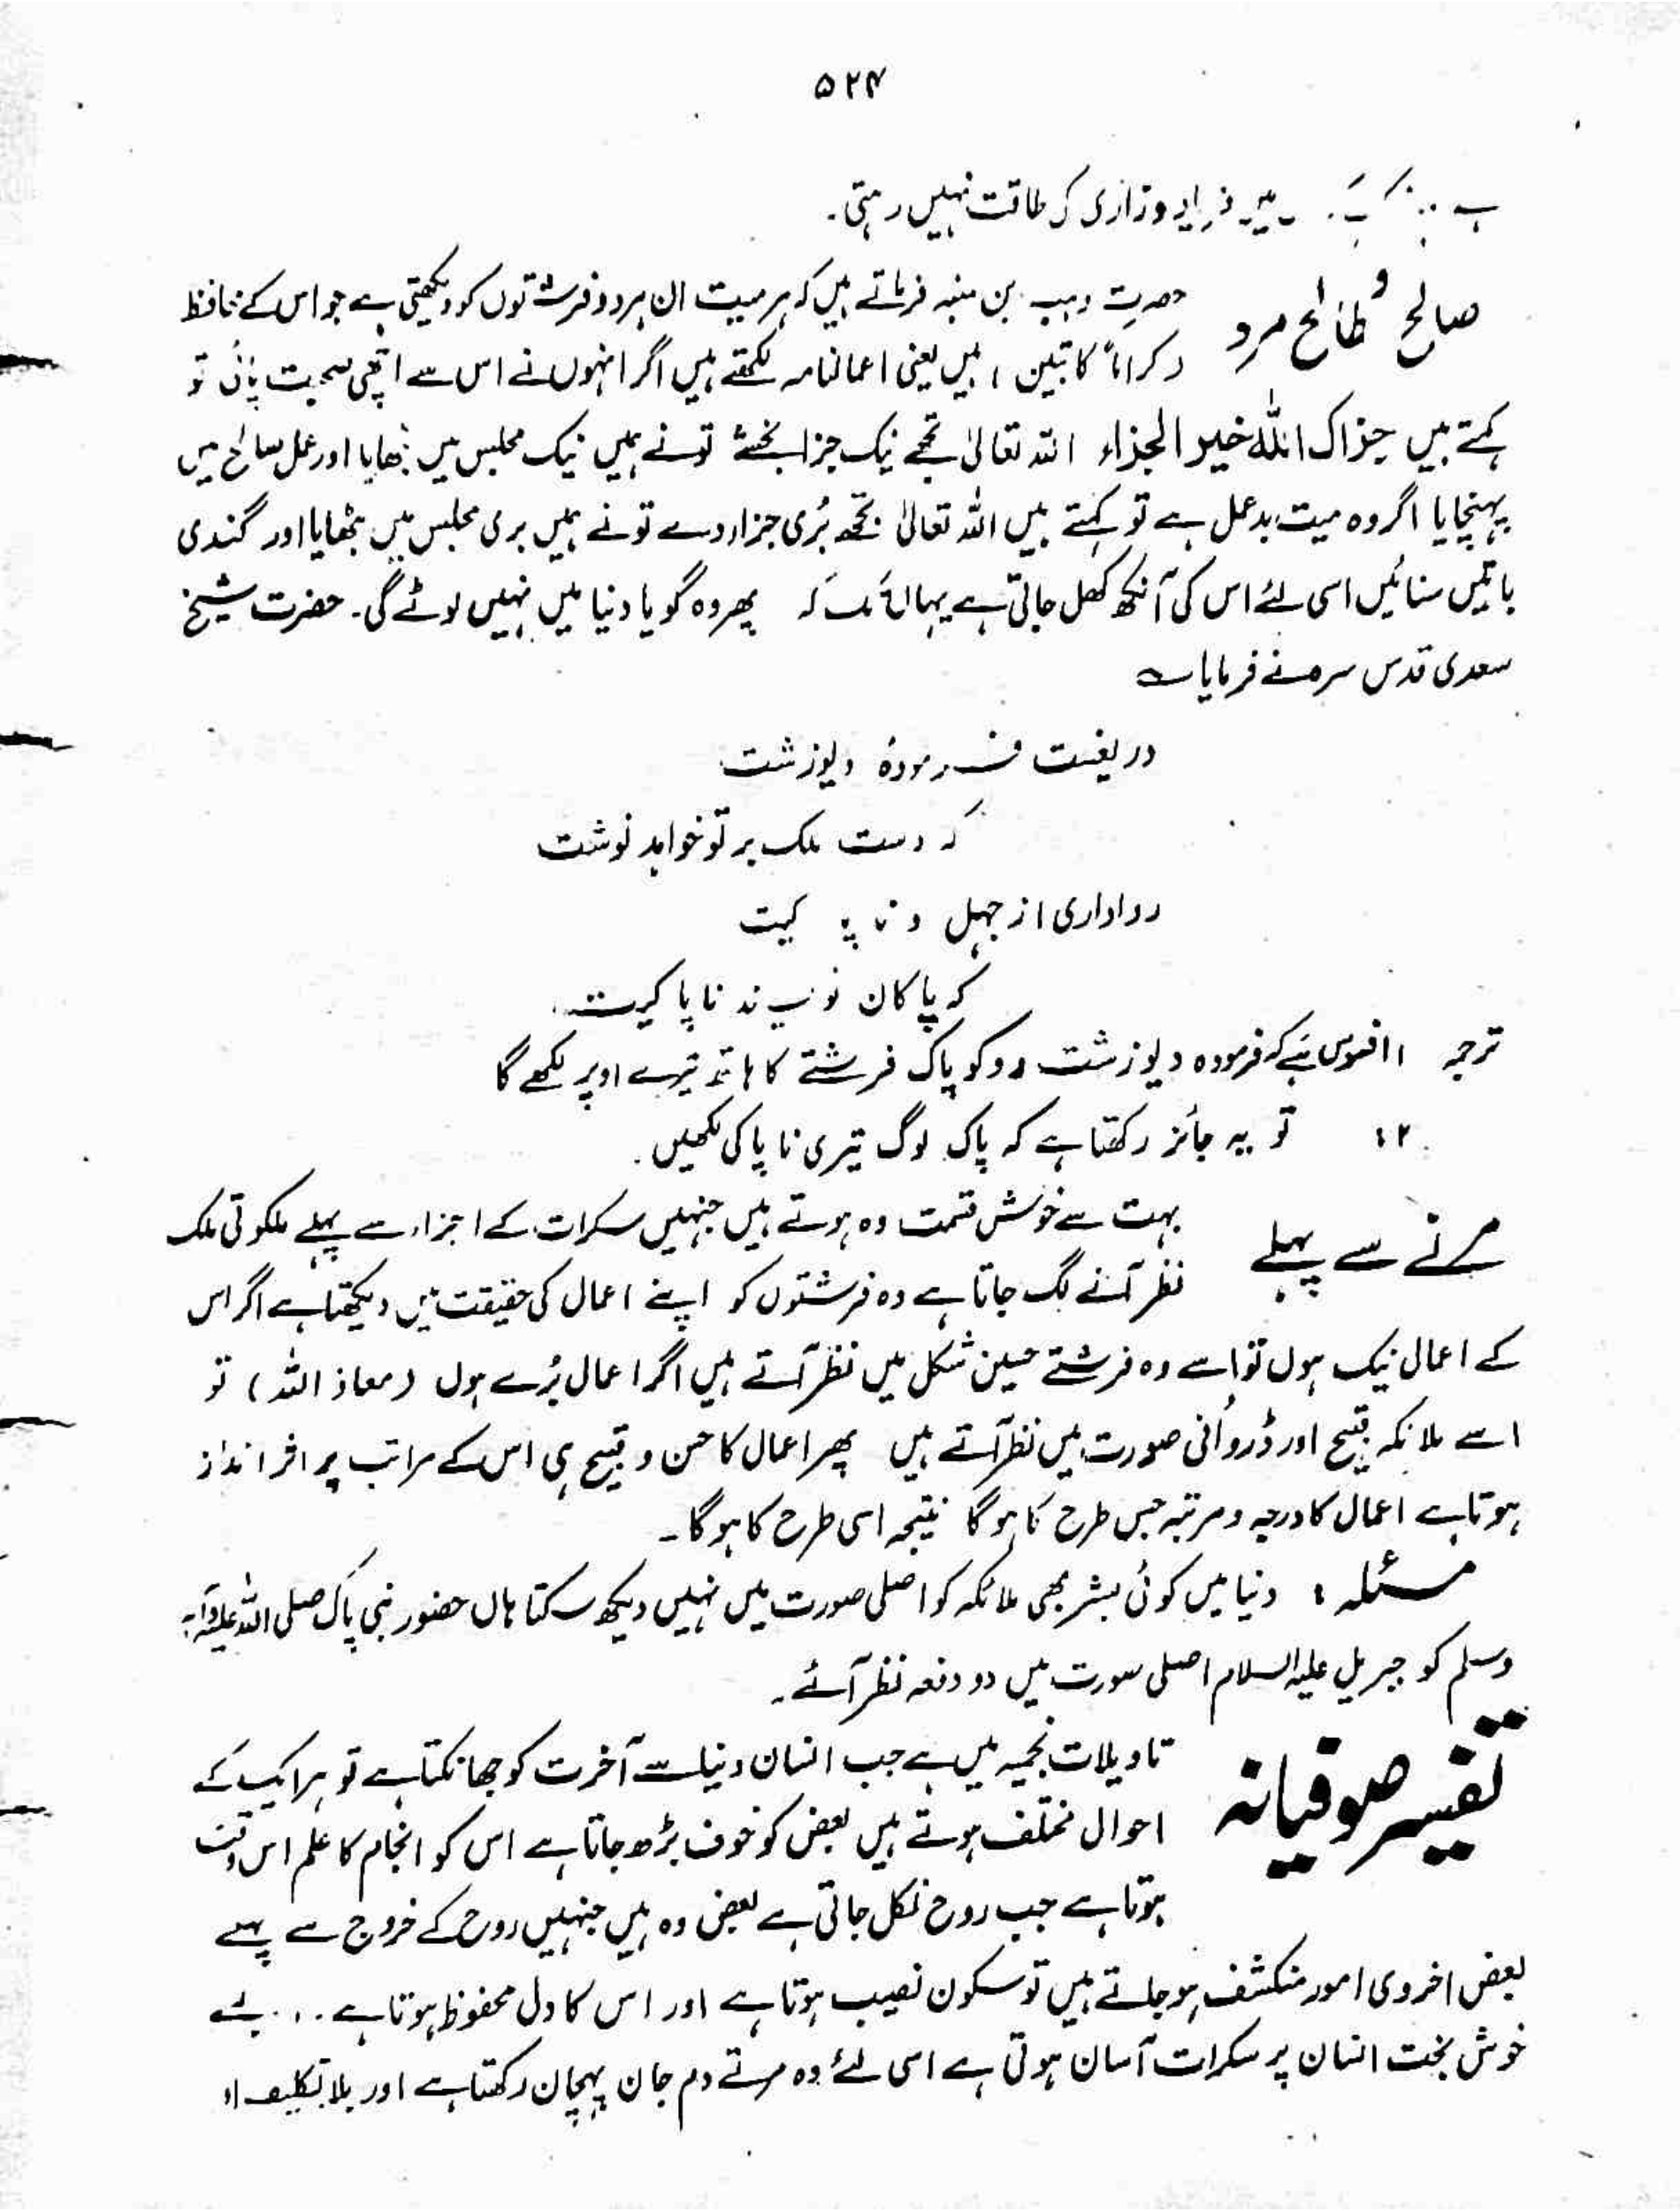 ۵۲۴
فریاد و زاری کی طاقت نہیں رہتی۔
صالح و طالح مرد
حضرت وہب بن منبہ فرماتے ہیں کہ ہر میت ان ہر دو فرشتوں کو دیکھتی ہے جو اس کے محافظ
(کراماً کاتبین) ہیں یعنی اعمالنامہ لکھتے ہیں اگر انہوں نے اس سے اچھی صحبت پائی تو
کہتے ہیں جزاک اللہ خیر الجزاء اللہ تعالیٰ تجھے نیک جزا بخشے تو نے ہمیں نیک مجلس میں بٹھایا اور عمل صالح میں
پہنچایا اگر وہ میت بدعمل ہے تو کہتے ہیں اللہ تعالیٰ تجھ بُری جزا دے تو نے ہمیں بری مجلس میں بٹھایا اور گندی
باتیں سنائیں اسی لئے اس کی آنکھ کھل جاتی ہے یہاں تک کہ پھر وہ گویا دنیا میں نہیں لوٹے گی۔ حضرت شیخ
سعدی قدس سرہ نے فرمایا ؎
دریغست فرمودۂ دیو زشت
کہ دست ملک بر تو خواہد نوشت
روا داری از جہل و نا کیت
کہ پاکان نویسند ناپاکیت
ترجمہ ۱ افسوس ہے کہ فرمودہ دیو زشت کو پاک فرشتے کا ہاتھ تیرے اوپر لکھے گا
۲: تو یہ جائز رکھتا ہے کہ پاک لوگ تیری ناپاکی لکھیں۔
مرنے سے پہلے
بہت سے خوش قسمت وہ ہوتے ہیں جنہیں سکرات کے اجزاء سے پہلے ملکوتی ملک
نظر آنے لگ جاتا ہے وہ فرشتوں کو اپنے اعمال کی حقیقت میں دیکھتا ہے اگر اس
کے اعمال نیک ہوں تو اسے وہ فرشتے حسین شکل میں نظر آتے ہیں اگر اعمال بُرے ہوں (معاذ اللہ) تو
اسے ملائکہ قبیح اور ڈراؤنی صورت میں نظر آتے ہیں پھر اعمال کا حسن و قبیح ہی اس کے مراتب پر اثر انداز
ہوتا ہے اعمال کا درجہ و مرتبہ جس طرح کا ہوگا نتیجہ اسی طرح کا ہوگا۔
مسئلہ: دنیا میں کوئی بشر بھی ملائکہ کو اصلی صورت میں نہیں دیکھ سکتا ہاں حضور نبی پاک صلی اللہ علیہ وآلہ
وسلم کو جبریل علیہ السلام اصلی صورت میں دو دفعہ نظر آئے۔
تفسیر صوفیانہ
تاویلات نجمیہ میں ہے جب انسان دنیا سے آخرت کو جھانکتا ہے تو ہر ایک کے
احوال مختلف ہوتے ہیں بعض کو خوف بڑھ جاتا ہے اس کو انجام کا علم اس وقت
ہوتا ہے جب روح نکل جاتی ہے بعض وہ ہیں جنہیں روح کے خروج سے پہلے
بعض اخروی امور منکشف ہو جاتے ہیں تو سکون نصیب ہوتا ہے اور اس کا دل محفوظ ہوتا ہے
خوش بخت انسان پر سکرات آسان ہوتی ہے اسی لئے وہ مرتے دم جان پہچان رکھتا ہے اور بلا تکلیف